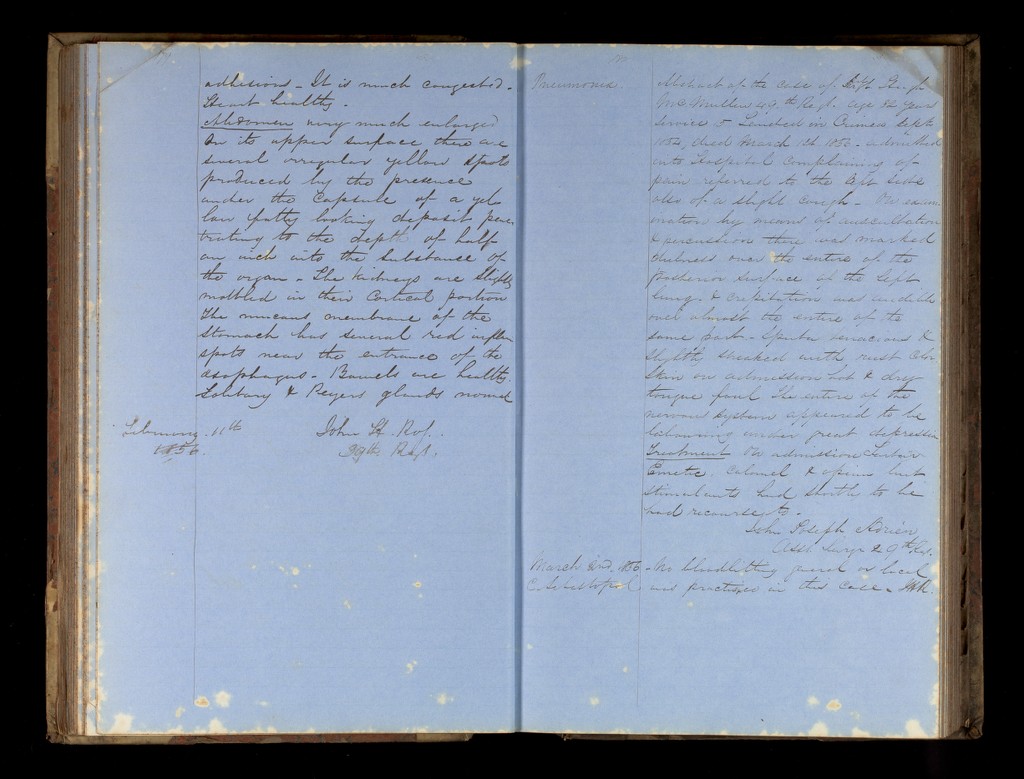 adhesion - It is much congested -
Heart healthy -
Abdomen very much enlarged
On its upper surface there are
several irregular yellow spots
produced by the presence
under the Capsule of a yel
low fatty looking deposit pene
trating to the depth of half
an inch into the Substance of
the organ - The Kidneys are Slightly
mottled in their Cortical portion
The mucous membrane of the
Stomach has several red
spots near the entrance of the
oesophagus - Bowels are healthy.
Solitary & Peyers glands normal
February 11th John H.
1856. Regt.
Pneumonia
Abstract of the case of Hugh
McMullen 49th Regt. age 24 Years
Service 5 - Landed in Crimea Sept
died March 1st 1856 - admitted
into Hospital Complaining of
pain referred to the left side
also of a slight cough - On exam
ination by means of auscultation
& percussion there was marked
dulness over the entire of the
posterior surface of the left
lung & crepitation was audible
over almost the entire of the
same part - Sputa tenacious &
slightly streaked with rust Color
Skin on admission hot & dry
tongue foul The entire of the
nervous system appeared to be
labouring under great depression
Treatment On admission Tartar
Emetic, Calomel & opium but
Stimulants had shortly to be
had recourse to -
John Joseph Adrien
Asst Surgn 49th Rgt.
March 2nd. 1856 - No bloodletting general or local
C. Sebastopol was practised in this Case -